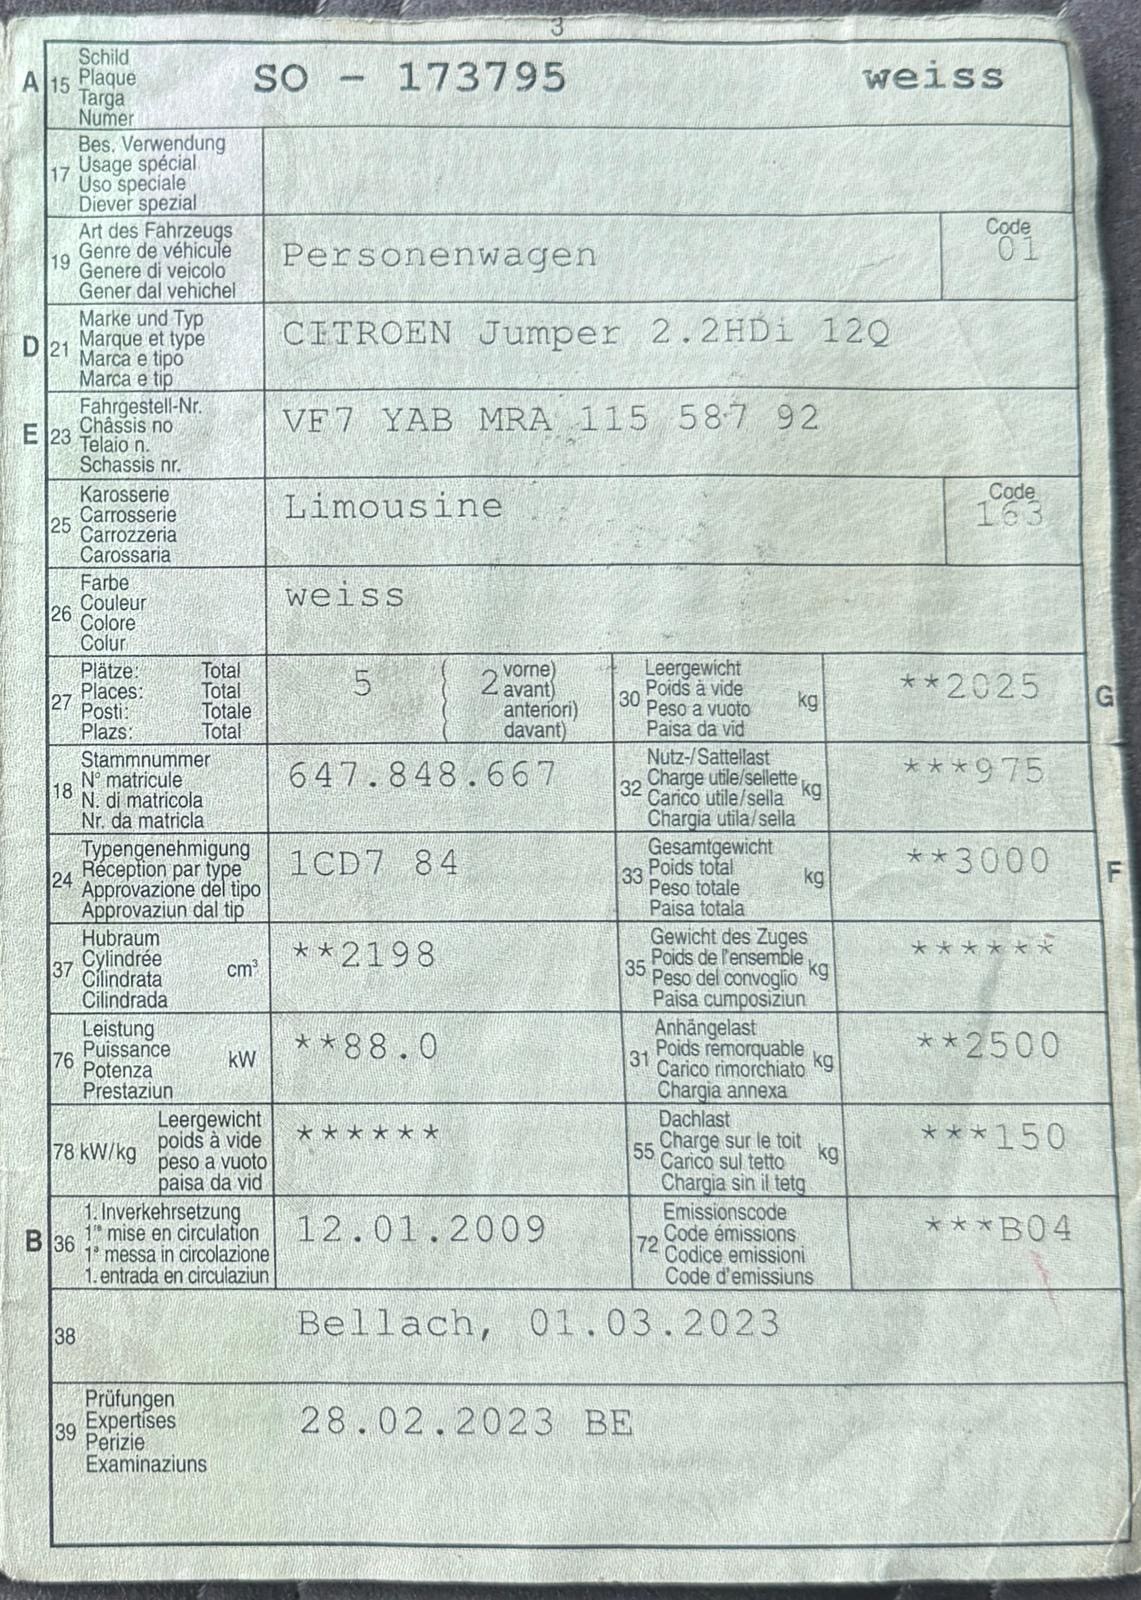 3
A 15 Schild
Plaque
Targa
Numer
SO - 173795 weiss
17 Bes. Verwendung
Usage spécial
Uso speciale
Diever spezial
19 Art des Fahrzeugs
Genre de véhicule
Genere di veicolo
Gener dal vehichel
Personenwagen
Code
01
D 21 Marke und Typ
Marque et type
Marca e tipo
Marca e tip
CITROEN Jumper 2.2HDi 12Q
E 23 Fahrgestell-Nr.
Châssis no
Telaio n.
Schassis nr.
VF7 YAB MRA 115 587 92
25 Karosserie
Carrosserie
Carrozzeria
Carossaria
Limousine
Code
163
26 Farbe
Couleur
Colore
Colur
weiss
27 Plätze: Total
Places: Total
Posti: Totale
Plazs: Total
5 ( 2 vorne)
avant)
anteriori)
davant)
30 Leergewicht
Poids à vide kg
Peso a vuoto
Paisa da vid
**2025
G
18 Stammnummer
N° matricule
N. di matricola
Nr. da matricla
647.848.667
32 Nutz-/Sattellast
Charge utile/sellette kg
Carico utile/sella
Chargia utila/sella
***975
24 Typengenehmigung
Réception par type
Approvazione del tipo
Approvaziun dal tip
1CD7 84
33 Gesamtgewicht
Poids total kg
Peso totale
Paisa totala
**3000
F
37 Hubraum
Cylindrée cm³
Cilindrata
Cilindrada
**2198
35 Gewicht des Zuges
Poids de l'ensemble kg
Peso del convoglio
Paisa cumposiziun
******
76 Leistung
Puissance kW
Potenza
Prestaziun
**88.0
31 Anhängelast
Poids remorquable kg
Carico rimorchiato
Chargia annexa
**2500
78 kW/kg Leergewicht
poids à vide
peso a vuoto
paisa da vid
******
55 Dachlast
Charge sur le toit kg
Carico sul tetto
Chargia sin il tetg
***150
B 36 1. Inverkehrsetzung
1re mise en circulation
1a messa in circolazione
1. entrada en circulaziun
12.01.2009
72 Emissionscode
Code émissions
Codice emissioni
Code d'emissiuns
***B04
38 Bellach, 01.03.2023
39 Prüfungen
Expertises
Perizie
Examinaziuns
28.02.2023 BE